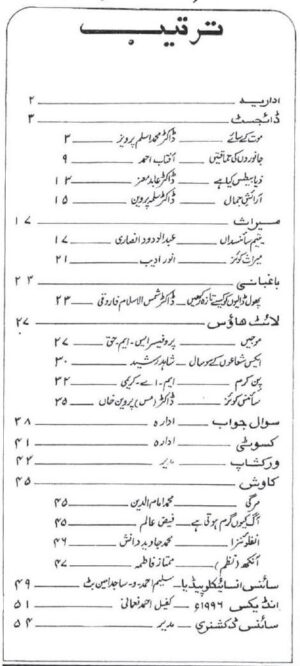 ترتیب
اداریہ ۲
ڈائجسٹ ۳
موت کے سائے ڈاکٹر محمد اسلم پرویز ۳
جانوروں کی طاقتیں آفتاب احمد ۹
ذیابیطس کیا ہے ڈاکٹر عابد معز ۱۳
آرائشی جمال ڈاکٹر سلمہ پروین ۱۵
میراث ۱۷
یتیم سائنسداں عبدالودود انصاری ۱۷
میراث کوئز انور ادیب ۲۱
باغبانی ۲۳
پھول ڈالیوں کو کیسے تازہ رکھیں ڈاکٹر شمس الاسلام فاروقی ۲۳
لائٹ ہاؤس ۲۷
موجیں پروفیسر ایس۔ایم۔حق ۲۷
ایکس شعاعوں کے سو سال شاہد رشید ۳۰
پن کرم ایم۔اے۔کریمی ۳۲
سائنسی کوئز ڈاکٹر (مس) پروین خاں ۳۵
سوال جواب ادارہ ۳۸
کسوٹی ادارہ ۴۱
ورکشاپ مدیر ۴۲
کاوش ۴۵
مرگی محمد امام الدین ۴۵
آگ کیوں گرم ہوتی ہے فیض عالم ۴۵
انفلوئنزا محمد جاوید دانش ۴۶
آنکھ (نظم) ممتاز فاطمہ ۴۷
سائنس انسائیکلوپیڈیا سلیم احمد۔و۔ساجد امین بٹ ۴۹
انڈیکس ۱۹۹۶ء کفیل احمد نعمانی ۵۱
سائنس ڈکشنری مدیر ۵۴